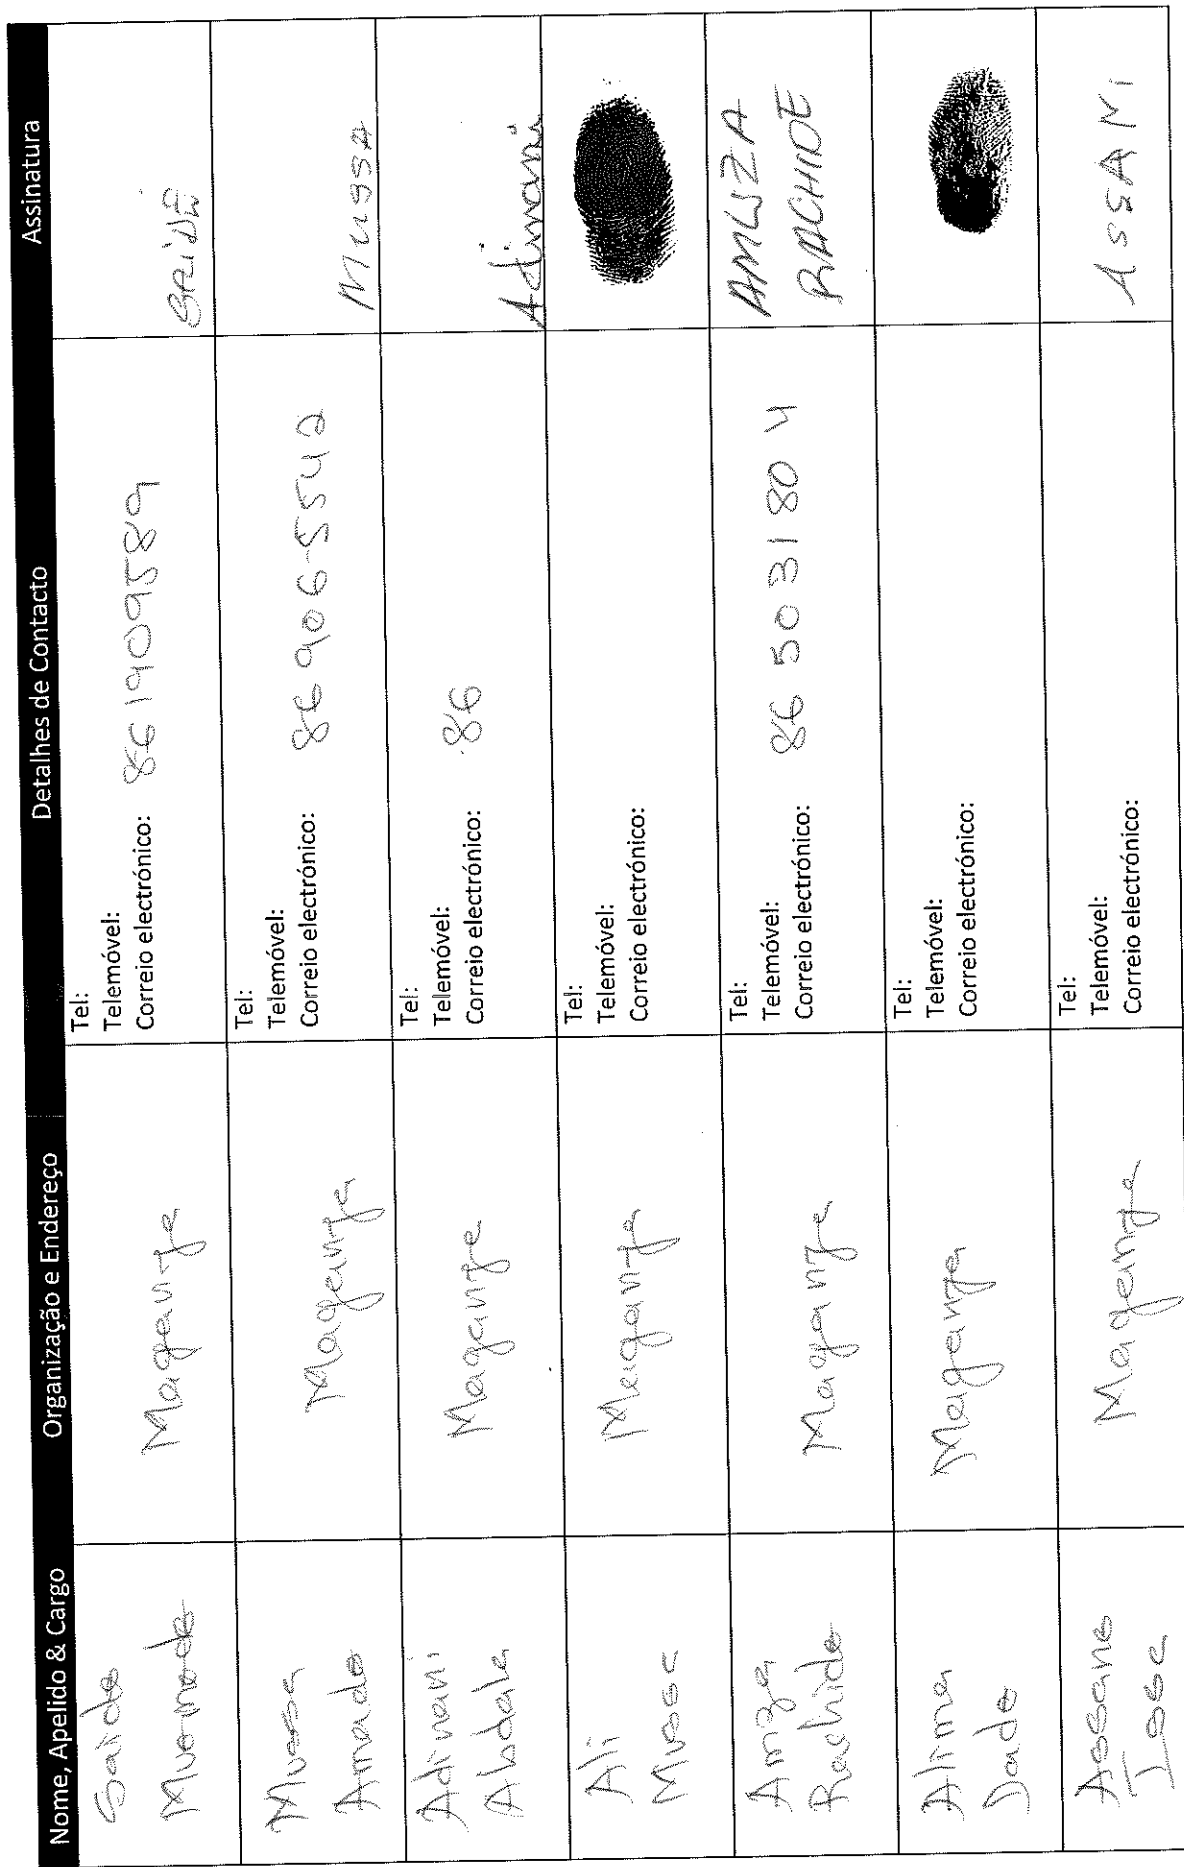 Nome, Apelido & Cargo Organização e Endereço Detalhes de Contacto Assinatura
Saide
Muamade
Maganja
Tel:
Telemóvel:
Correio electrónico: 861909589
SAIDE
Mussa
Amade
Maganja
Tel:
Telemóvel:
Correio electrónico: 869065542
Mussa
Adinani
Abdala
Maganja
Tel:
Telemóvel: 86
Correio electrónico:
Adinani
Ali
Musse
Maganja
Tel:
Telemóvel:
Correio electrónico:
Amza
Rachide
Maganja
Tel:
Telemóvel: 86 5031804
Correio electrónico:
AMUZA
RACHIDE
Alima
Dade
Maganja
Tel:
Telemóvel:
Correio electrónico:
Assane
Maganja
Tel:
Telemóvel:
Correio electrónico:
ASSANI